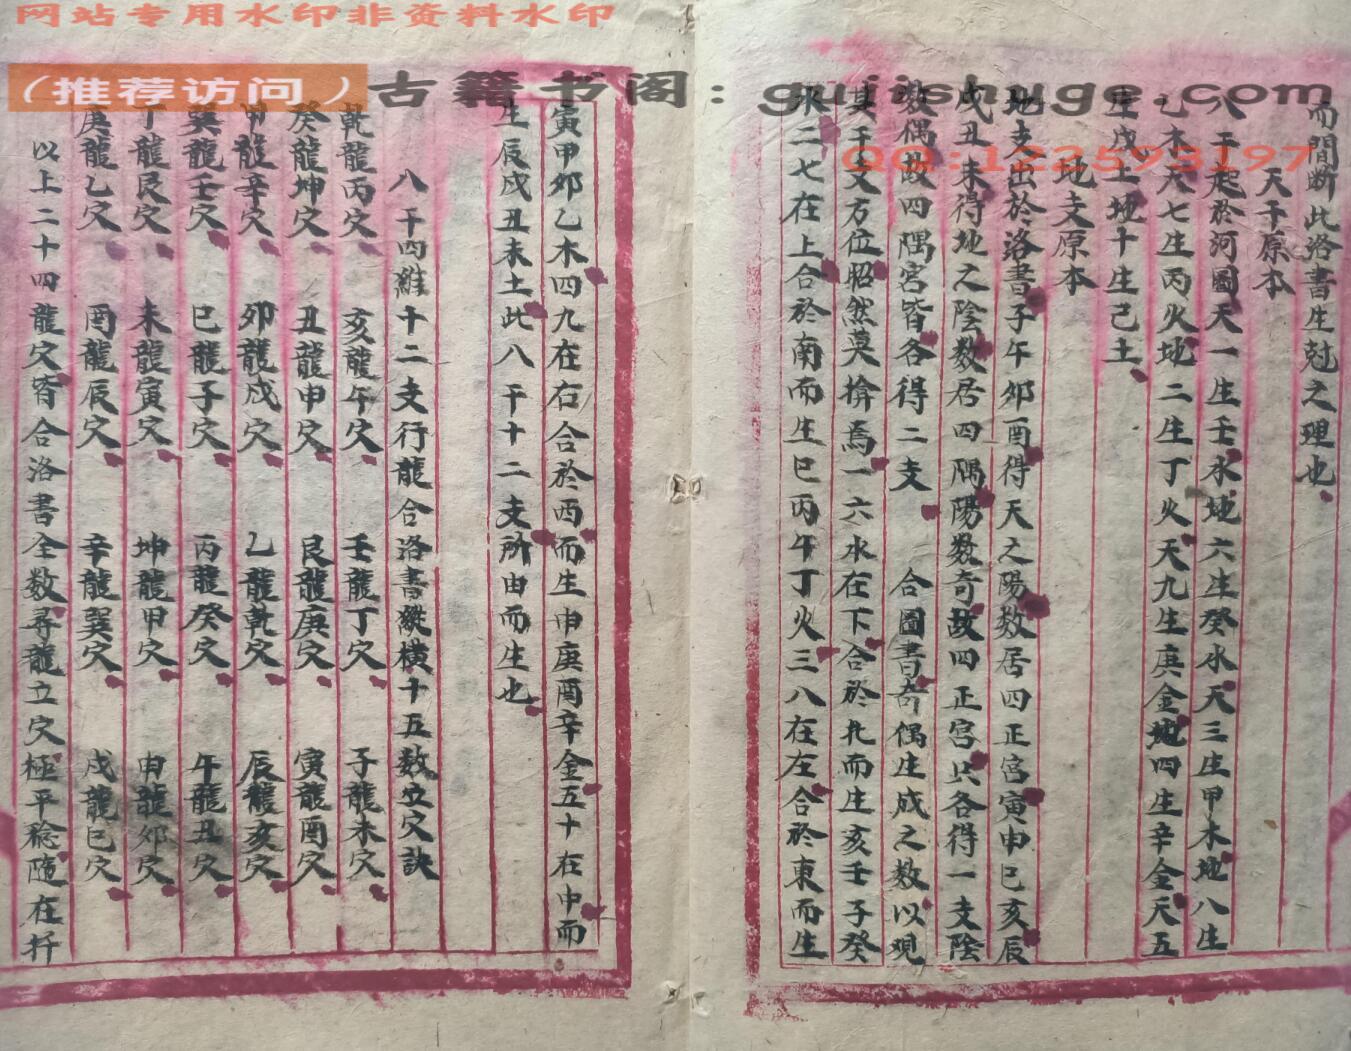 网站专用水印非资料水印
（推荐访问）古籍书阁：gujishuge.com
QQ:122593197
而間断此洛書生尅之理也
天干原本
八干起於河圖天一生壬水地六生癸水天三生甲木地八生
乙木天七生丙火地二生丁火天九生庚金地四生辛金天五
生戊土地十生己土
地支原本
地支出於洛書子午卯酉得天之陽数居四正宫寅申巳亥辰
戌丑未得地之陰数居四隅陽数奇故四正宫共各得一支陰
数偶故四隅宫皆各得二支 合圖書奇偶生成之数以观
其干支方位昭然莫揜焉一六水在下合於北而生亥壬子癸
水二七在上合於南而生巳丙午丁火三八在左合於東而生
寅甲卯乙木四九在右合於西而生申庚酉辛金五十在中而
生辰戌丑未土此八干十二支所由而生也
八干四維十二支行龍合洛書縱橫十五数立穴訣
乾龍丙穴 亥龍午穴 壬龍丁穴 子龍未穴
癸龍坤穴 丑龍申穴 艮龍庚穴 寅龍酉穴
甲龍辛穴 卯龍戌穴 乙龍乾穴 辰龍亥穴
巽龍壬穴 巳龍子穴 丙龍癸穴 午龍丑穴
丁龍艮穴 未龍寅穴 坤龍甲穴 申龍卯穴
庚龍乙穴 酉龍辰穴 辛龍巽穴 戌龍巳穴
以上二十四龍穴皆合洛書全数尋龍立穴極平稳隨在扦